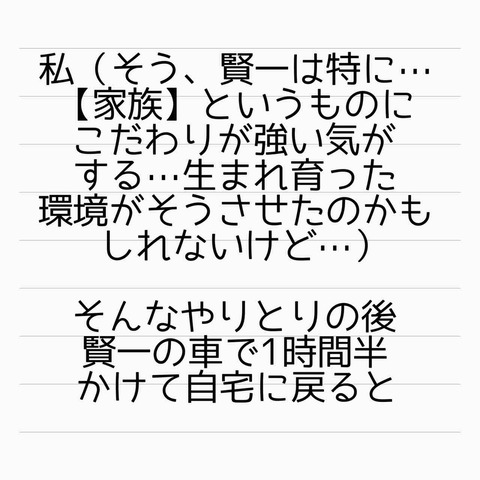 私（そう、賢一は特に…
【家族】というものに
こだわりが強い気が
する…生まれ育った
環境がそうさせたのかも
しれないけど…）
そんなやりとりの後
賢一の車で1時間半
かけて自宅に戻ると